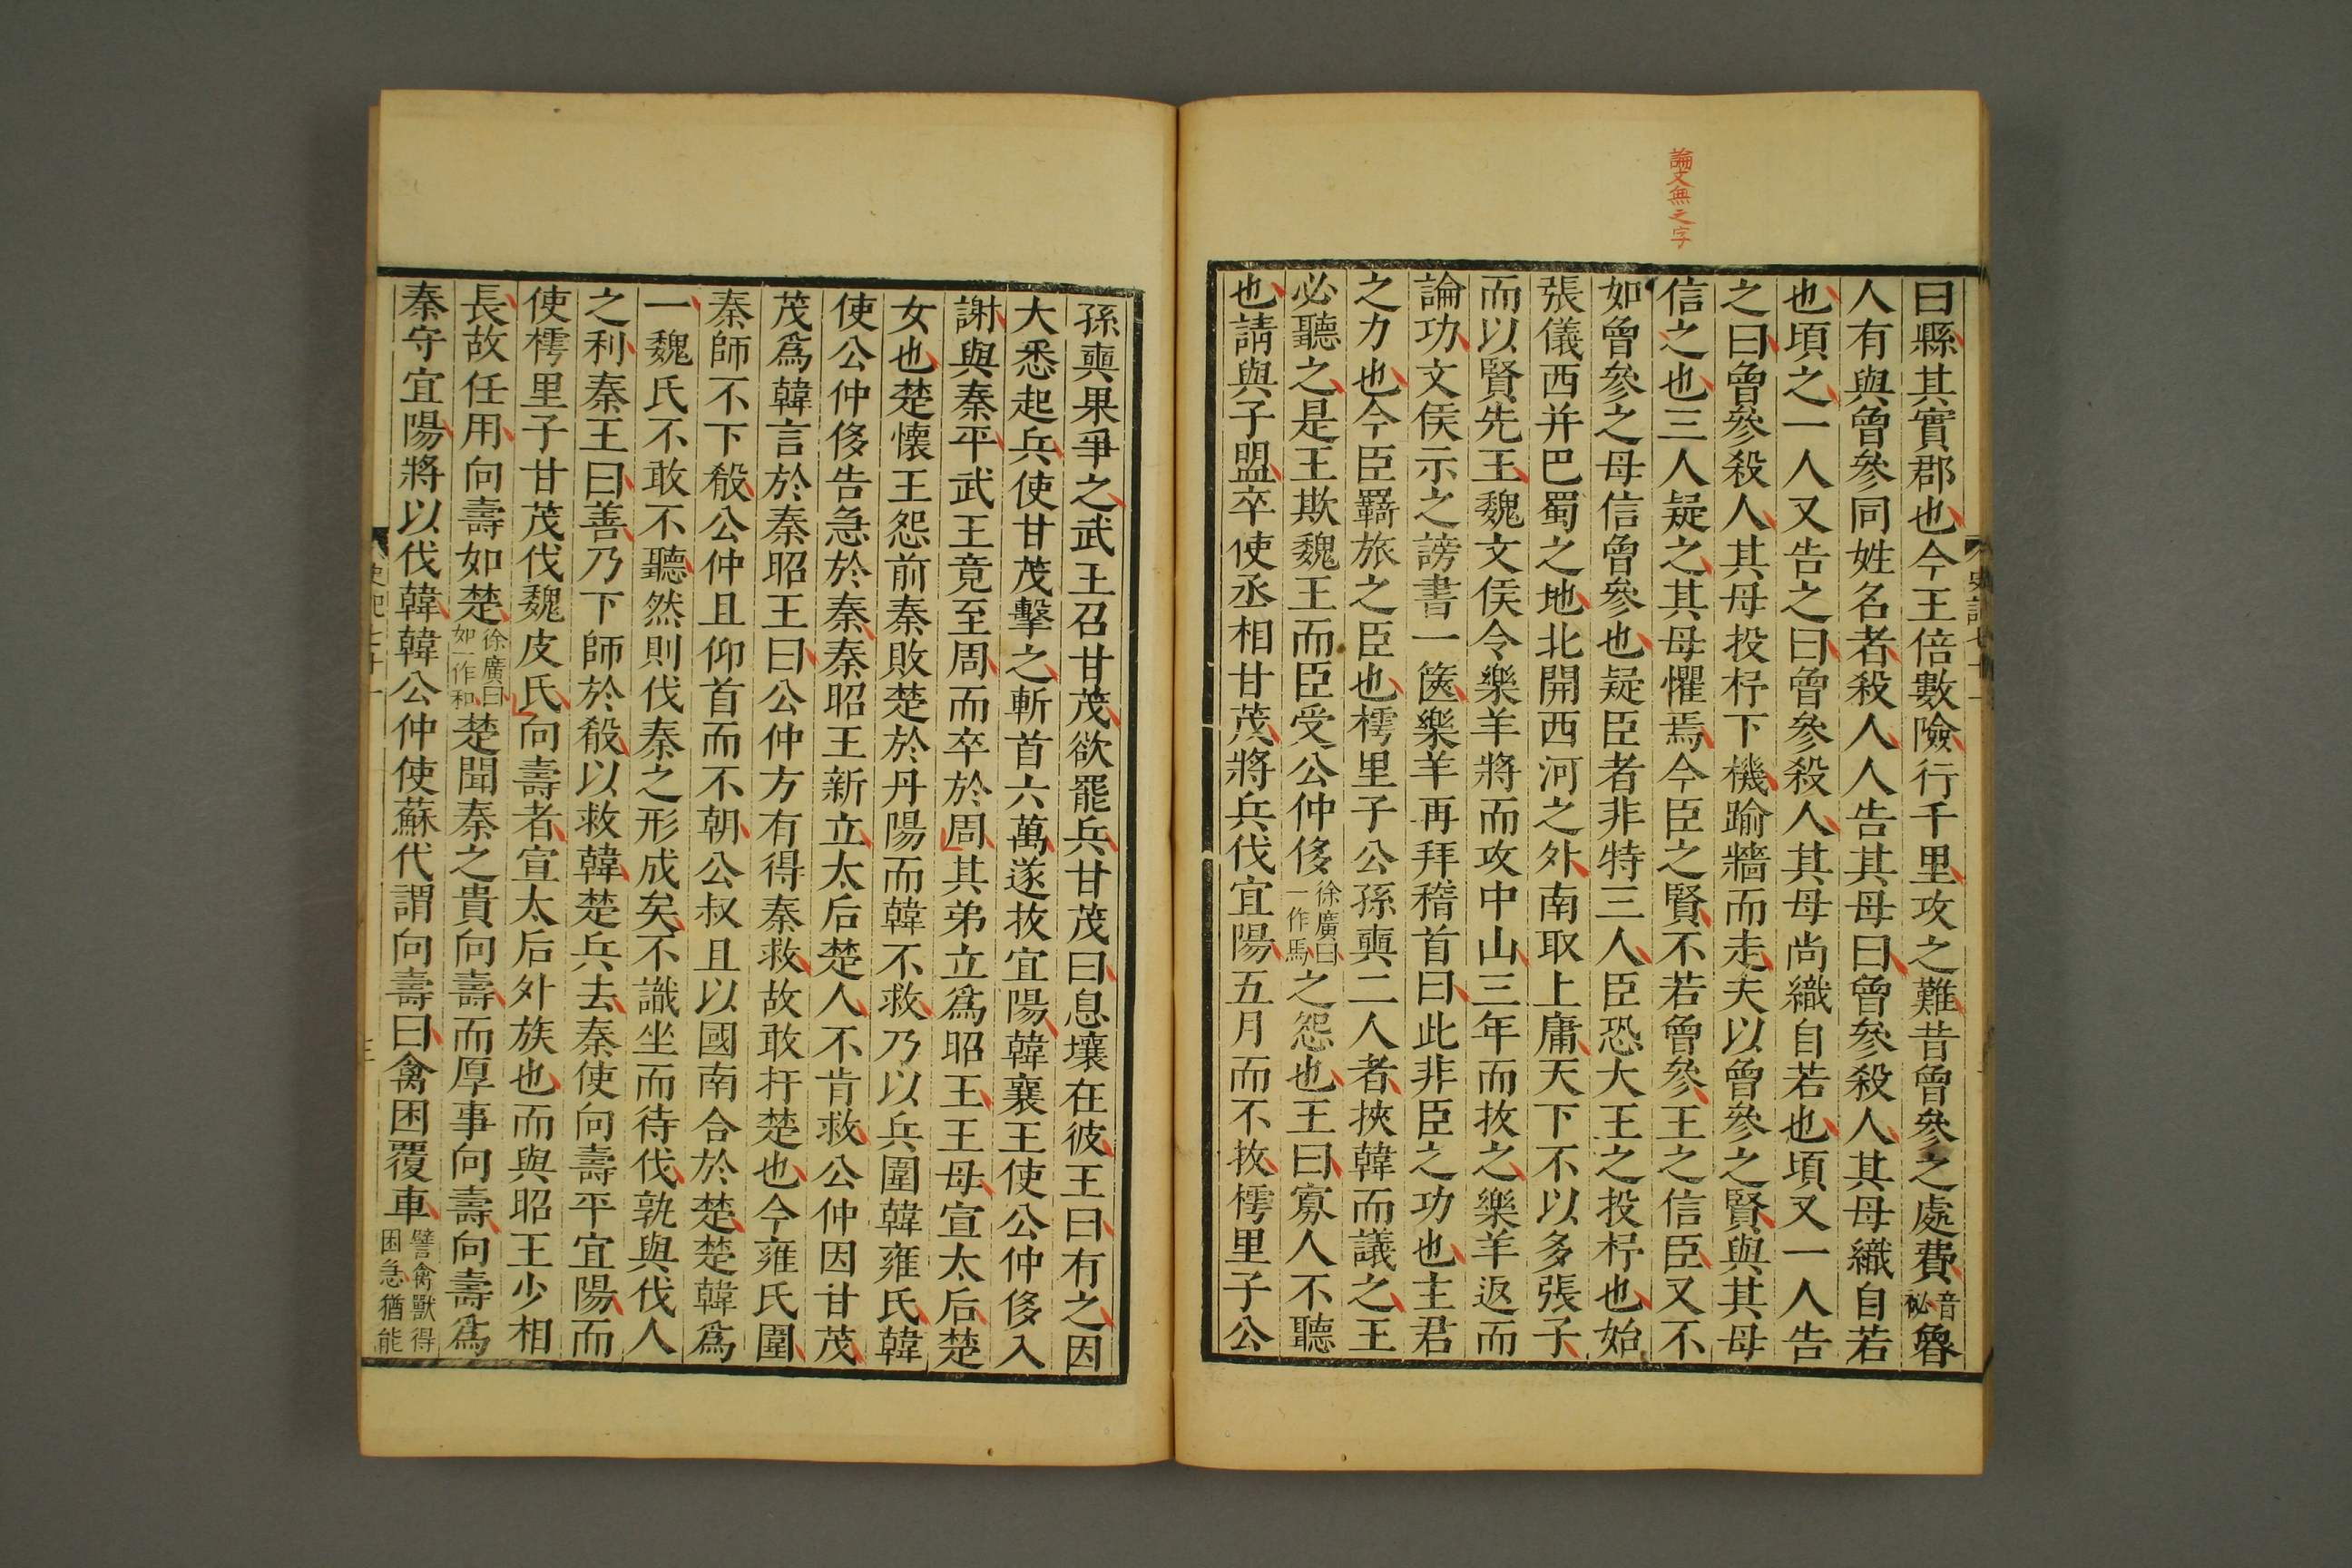 論文無之字
曰縣其實郡也今王倍數險行千里攻之難昔曾參之處費音祕魯
人有與曾參同姓名者殺人人告其母曰曾參殺人其母織自若
也頃之一人又告之曰曾參殺人其母尚織自若也頃又一人告
之曰曾參殺人其母投杼下機踰牆而走夫以曾參之賢與其母
信之也三人疑之其母懼焉今臣之賢不若曾參王之信臣又不
如曾參之母信曾參也疑臣者非特三人臣恐大王之投杼也始
張儀西并巴蜀之地北開西河之外南取上庸天下不以多張子
而以賢先王魏文侯令樂羊將而攻中山三年而拔之樂羊返而
論功文侯示之謗書一篋樂羊再拜稽首曰此非臣之功也主君
之力也今臣羇旅之臣也樗里子公孫奭二人者挾韓而議之王
必聽之是王欺魏王而臣受公仲侈徐廣曰一作馮之怨也王曰寡人不聽
也請與子盟卒使丞相甘茂將兵伐宜陽五月而不拔樗里子公
孫奭果爭之武王召甘茂欲罷兵甘茂曰息壤在彼王曰有之因
大悉起兵使甘茂擊之斬首六萬遂拔宜陽韓襄王使公仲侈入
謝與秦平武王竟至周而卒於周其弟立爲昭王王母宣太后楚
女也楚懷王怨前秦敗楚於丹陽而韓不救乃以兵圍韓雍氏韓
使公仲侈告急於秦秦昭王新立太后楚人不肯救公仲因甘茂
茂爲韓言於秦昭王曰公仲方有得秦救故敢扞楚也今雍氏圍
秦師不下殽公仲且仰首而不朝公叔且以國南合於楚楚韓爲
一魏氏不敢不聽然則伐秦之形成矣不識坐而待伐孰與伐人
之利秦王曰善乃下師於殽以救韓楚兵去秦使向壽平宜陽而
使樗里子甘茂伐魏皮氏向壽者宣太后外族也而與昭王少相
長故任用向壽如楚徐廣曰如一作和楚聞秦之貴向壽而厚事向壽向壽爲
秦守宜陽將以伐韓韓公仲使蘇代謂向壽曰禽困覆車譬禽獸得困急猶能